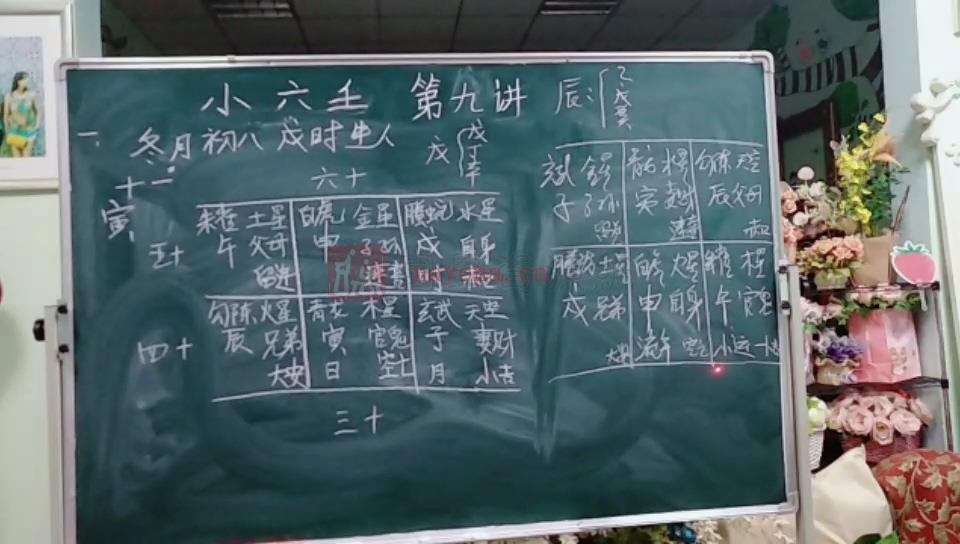 小六壬 第九讲 辰:{乙戊癸
一、冬月初八 戌时生人 戌{戊丁辛
十一
寅
六十
五十
朱雀 土星 白虎 金星 腾蛇 水星
午 父母 申 子孙 戌 自身
留连 时
勾陈 火星 青龙 木星 玄武 天空
辰 兄弟 寅 官鬼 子 妻财
大安 日 空亡 月 小吉
四十
三十
玄武 青龙 勾陈 天空
子 子孙 寅 辰 父母
腾蛇 土星 白虎 火星 朱雀 木星
戌 兄弟 申 自身 午 官鬼
大安 流年 空亡 小运